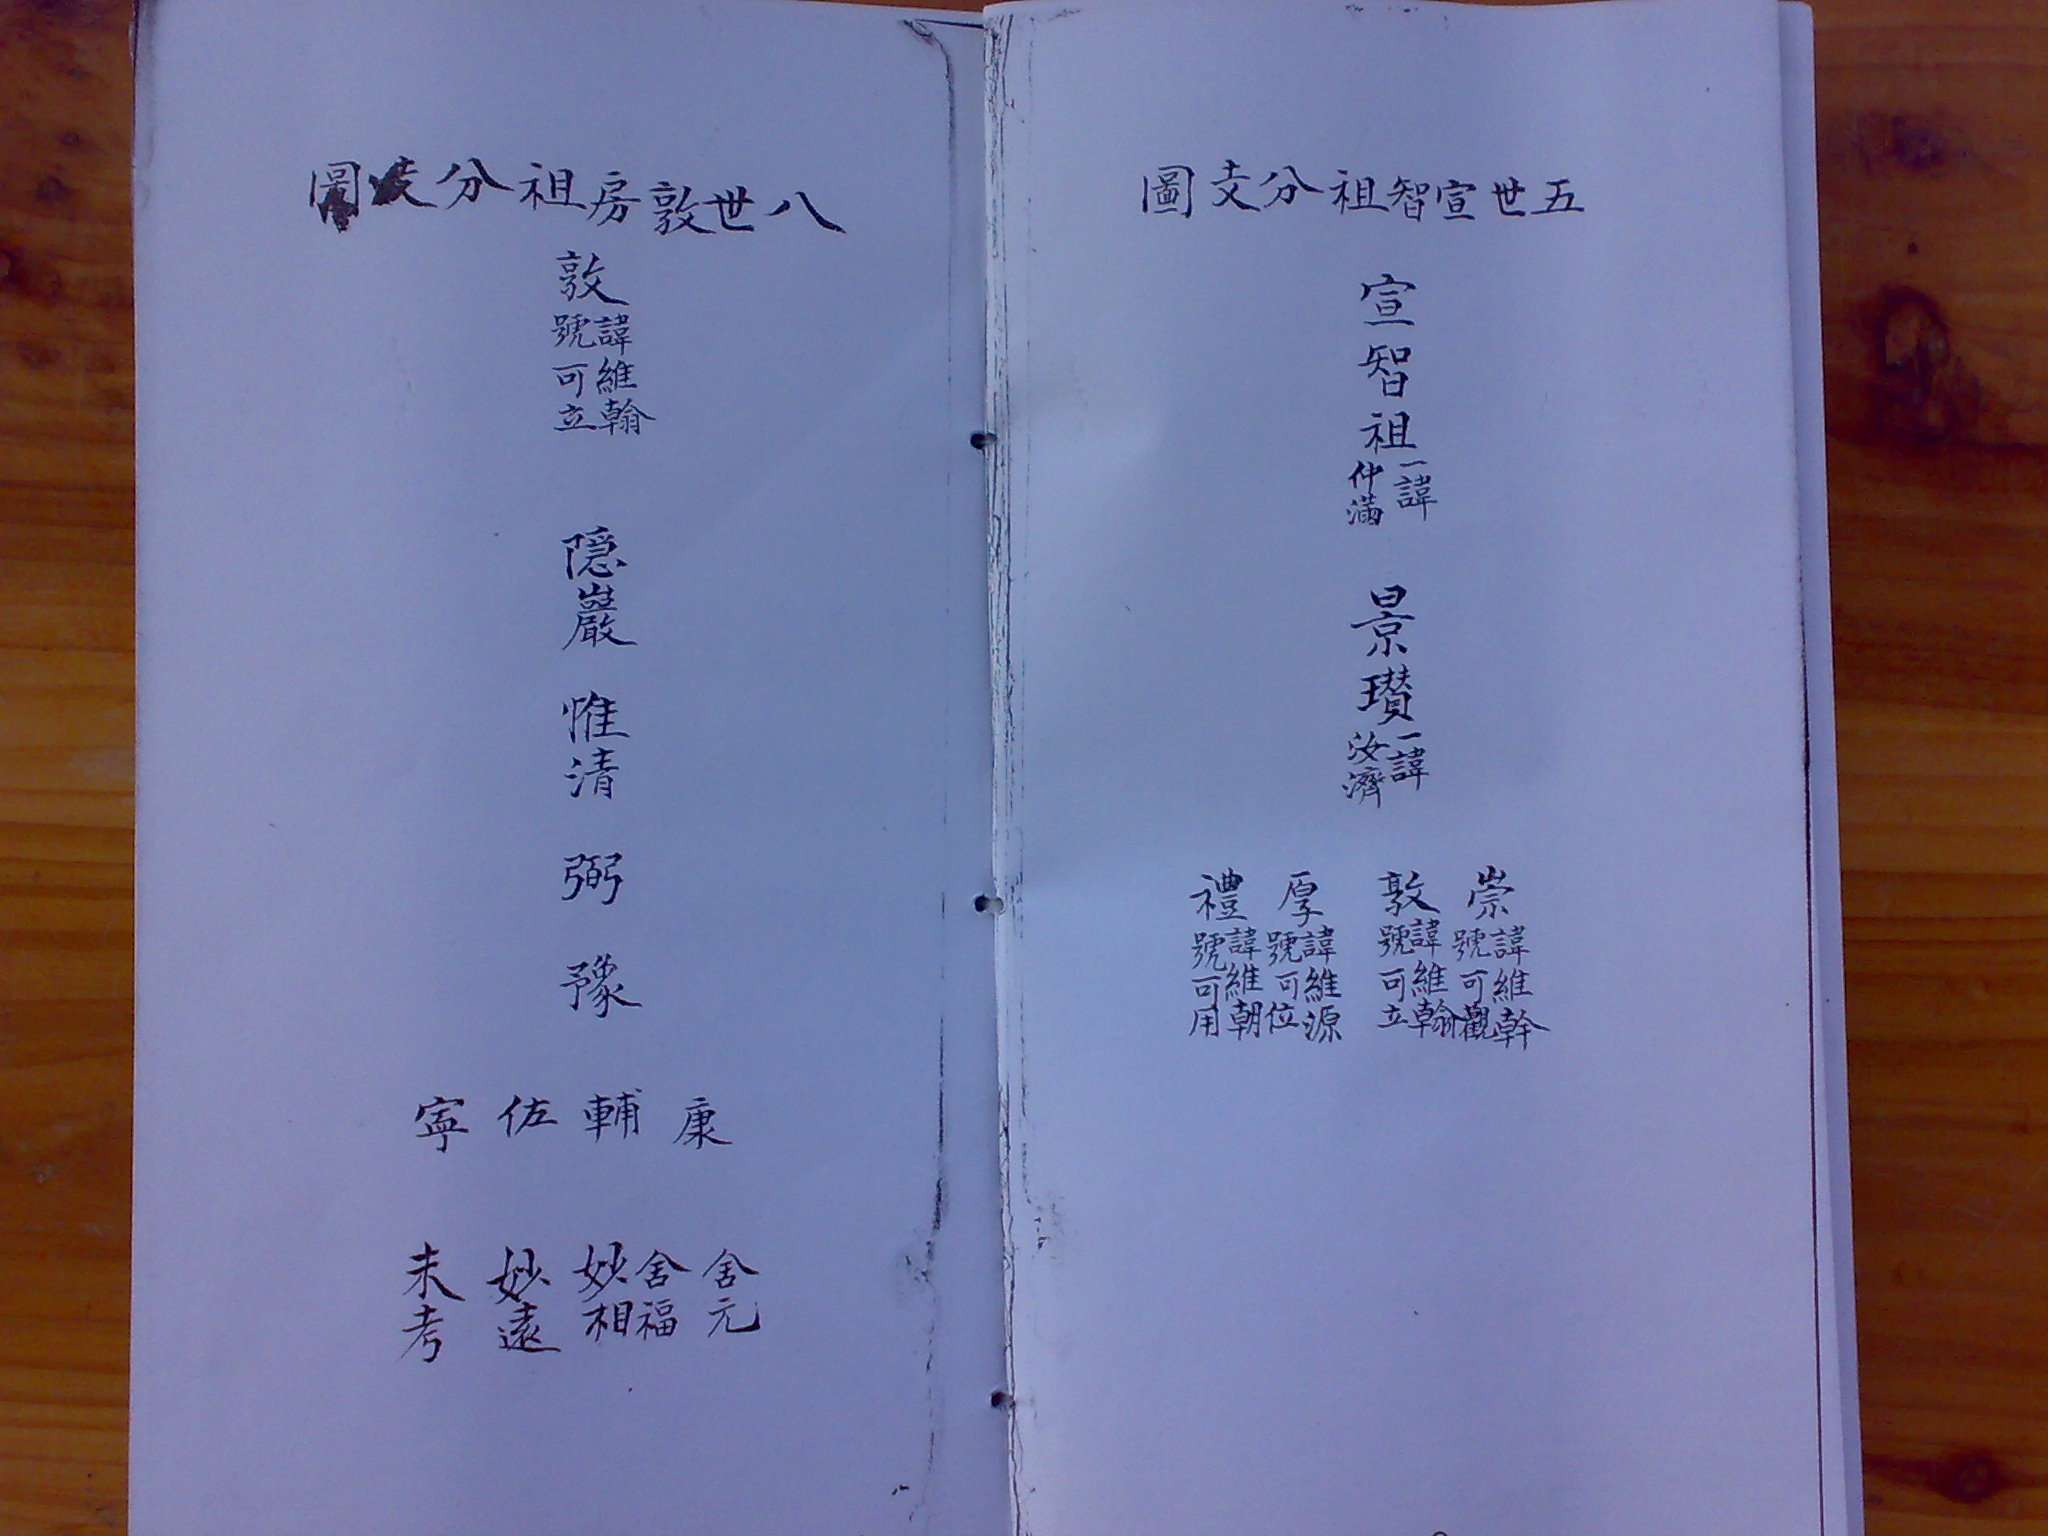 五世宣智祖分支圖
宣智祖
一諱
仲滿
景瓚
一諱
汝濟
崇
諱維幹
號可觀
敦
諱維翰
號可立
厚
諱維源
號可位
禮
諱維朝
號可用
八世敦房祖分支圖
敦
諱維翰
號可立
隠巖
惟清
弼
豫
康
輔
佐
寜
舍元
舍福
妙相
妙遠
未考